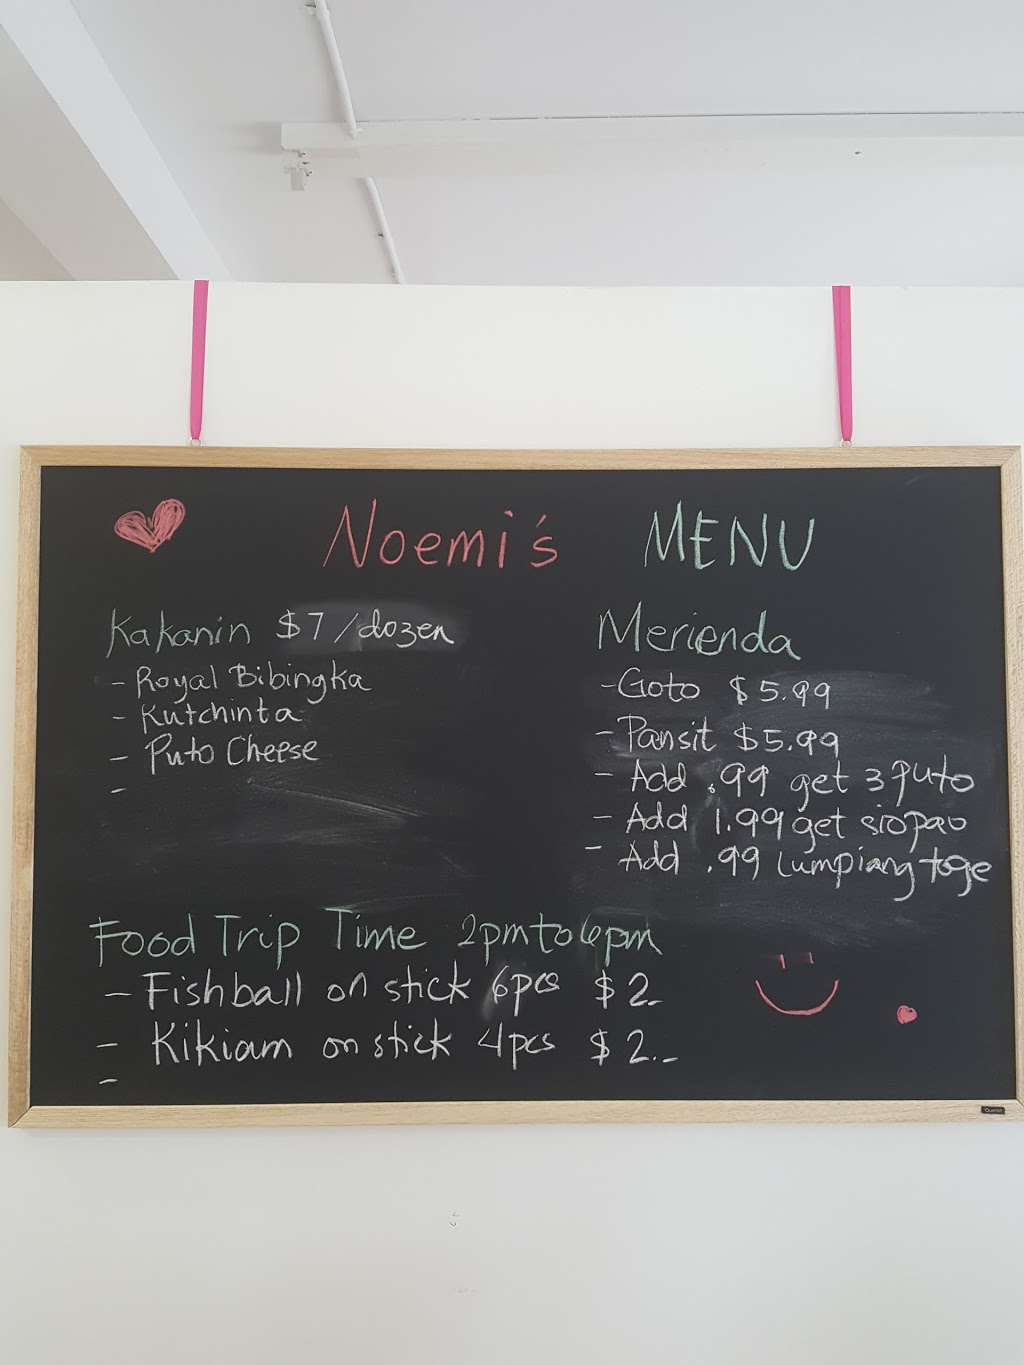 Noemi's MENU
Kakanin $7/dozen
- Royal Bibingka
- Kutchinta
- Puto Cheese
-
Merienda
- Goto $5.99
- Pansit $5.99
- Add .99 get 3 puto
- Add 1.99 get siopao
- Add .99 lumpiang toge
Food Trip Time 2pm to 6pm
- Fishball on stick 6pcs $2.-
- Kikiam on stick 4pcs $2.--
-
Quartet